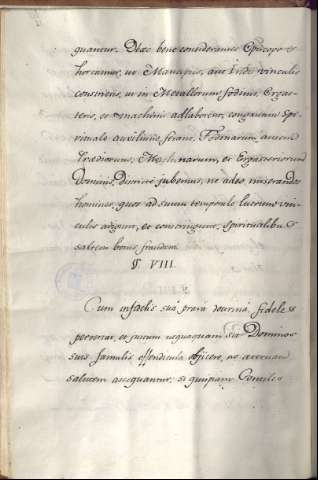 quantur. Haec bene considerantes Episcopos
hortamur, ut Mancipiis, aut Indis vinculis
constrictis, ut in Metallorum fodinis, Ergas-
teriis, et machinis adlaborent, congruum Spi-
rituale auxilium ferant. Fodinarum autem
Praediorum, Molinarum, et Ergasteriorum
Dominis, districte jubemus, ne adeo miserandos
homines, quos ad suum temporale lucrum vin-
culis adigunt, et constringunt, spiritualibus
saltem bonis fraudent.
§. VIII.
Cum infidelis suâ pravâ doctrinâ fideles
pervertat, et nequaquam sit Dominos
suis famulis offendicula objicere, ne aeternam
salutem assequantur: si quispiam Conciles